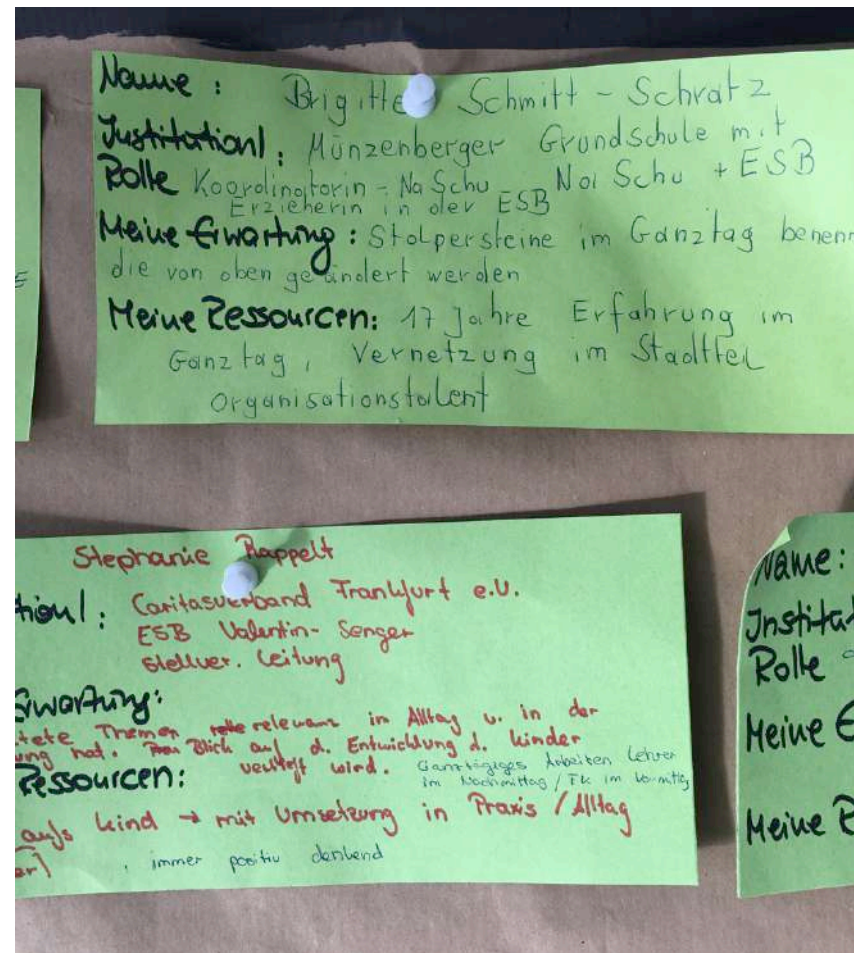 Name: Brigitte Schmitt-Schratz
Institution/: Münzenberger Grundschule mit
Rolle Koordinatorin - NaSchu NaiSchu + ESB
Erzieherin in der ESB
Meine Erwartung: Stolpersteine im Ganztag benenn
die von oben geändert werden
Meine Ressourcen: 17 Jahre Erfahrung im
Ganztag, Vernetzung im Stadtteil
Organisationstalent
Stephanie Rappelt
tion/: Caritasverband Frankfurt e.V.
ESB Valentin-Senger
stellver. Leitung
Erwartung:
tete Themen relevanz im Alltag u. in der
ung hat. Blick auf d. Entwicklung d. Kinder
vertieft wird. Ganztägiges Arbeiten Lehrer
im Nachmittag / Fk im Vormittag
Ressourcen:
aufs Kind → mit Umsetzung in Praxis / Alltag
er] , immer positiv denkend
Name:
Institut
Rolle
Meine E
Meine R